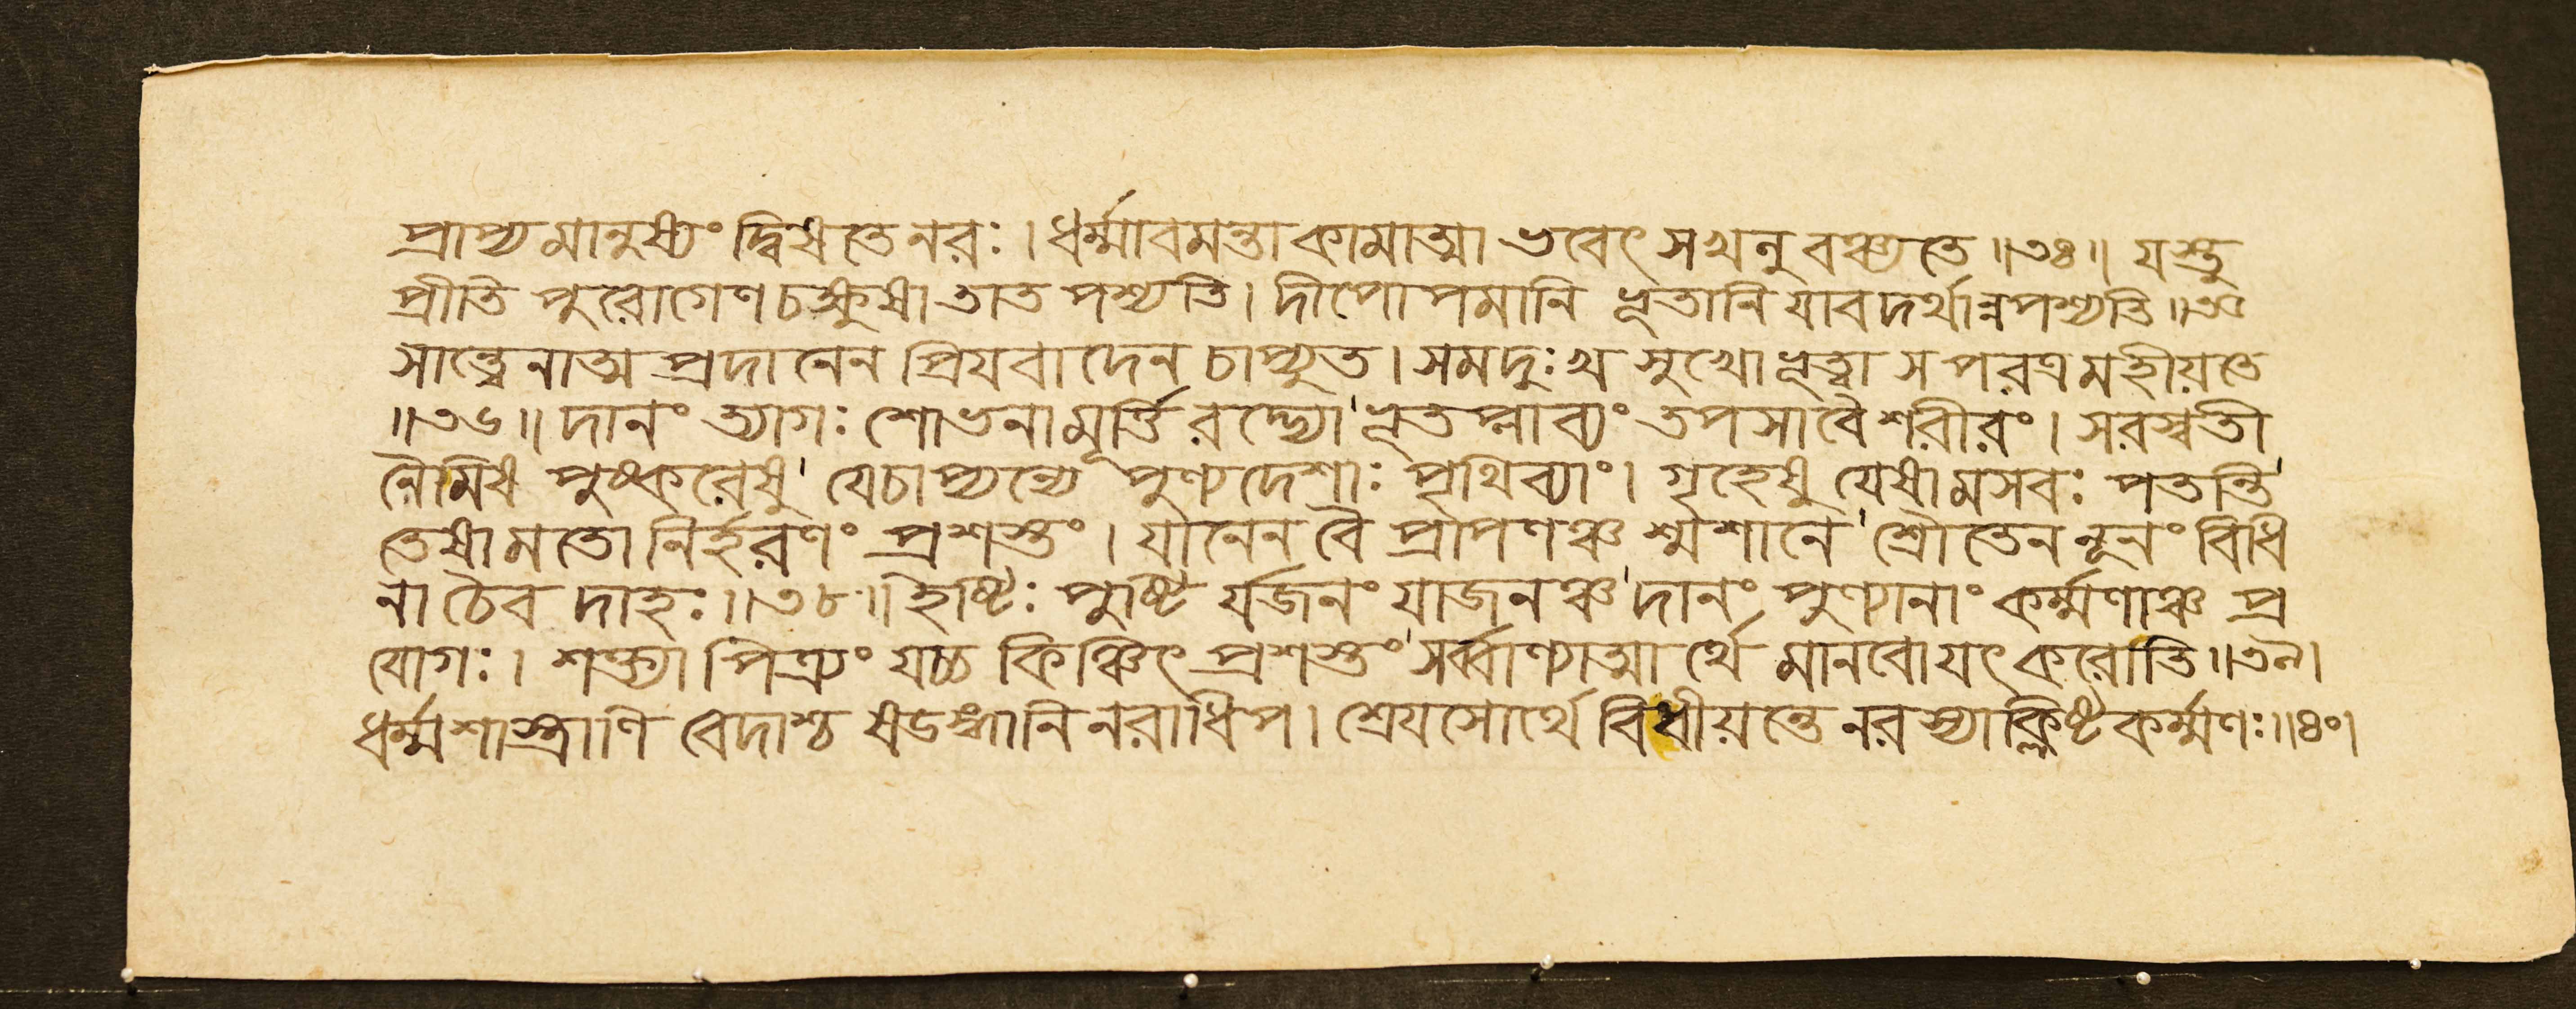 প্রাপ্য মানুষ্যং দ্বিষতে নরঃ । ধর্ম্মাবমন্তা কামাত্মা ভবেৎ স খলু বঞ্চ্যতে ॥৩৪॥ যস্তু
প্রীতি পুরোগেণ চক্ষুষা তাত পশ্যতি । দীপোপমানি ভূতানি যাবদর্থান্নপশ্যতি ॥৩৫
সান্ত্বেনাত্ম প্রদানেন প্রিযবাদেন চাপ্যুত । সমদুঃখ সুখো ভূত্বা স পরত্র মহীয়তে
॥৩৬॥ দানং ত্যাগঃ শোভনা মূর্ত্তিরদ্ভ্যো' ভূতপ্লাব্যং তপসা বৈ শরীরং । সরস্বতী
নৈমিষ পুষ্করেষু' যে চাপ্যন্যে পুণ্যদেশাঃ পৃথিব্যাং । গৃহেষু যেষামসবঃ পতন্তি'
তেষামতো নির্হরণং প্রশস্তং । যানেন বৈ প্রাপণঞ্চ শ্মশানে' শ্রৌতেন নূনং বিধি
না চৈব দাহঃ ॥৩৮॥ ইষ্টিঃ পুষ্টি র্যজনং যাজনঞ্চ' দানং পুণ্যানাং কর্ম্মণাঞ্চ প্র
যোগঃ । শক্ত্যা পিত্র্যং যচ্চ কিঞ্চিৎ প্রশস্তং' সর্ব্বাণ্যাত্মার্থে মানবো যৎ করোতি ॥৩৯।
ধর্ম্মশাস্ত্রাণি বেদাশ্চ ষডঙ্গানি নরাধিপ । শ্রেযসোর্থে বিধীয়ন্তে নরস্যাক্লিষ্ট কর্ম্মণঃ ॥৪০।